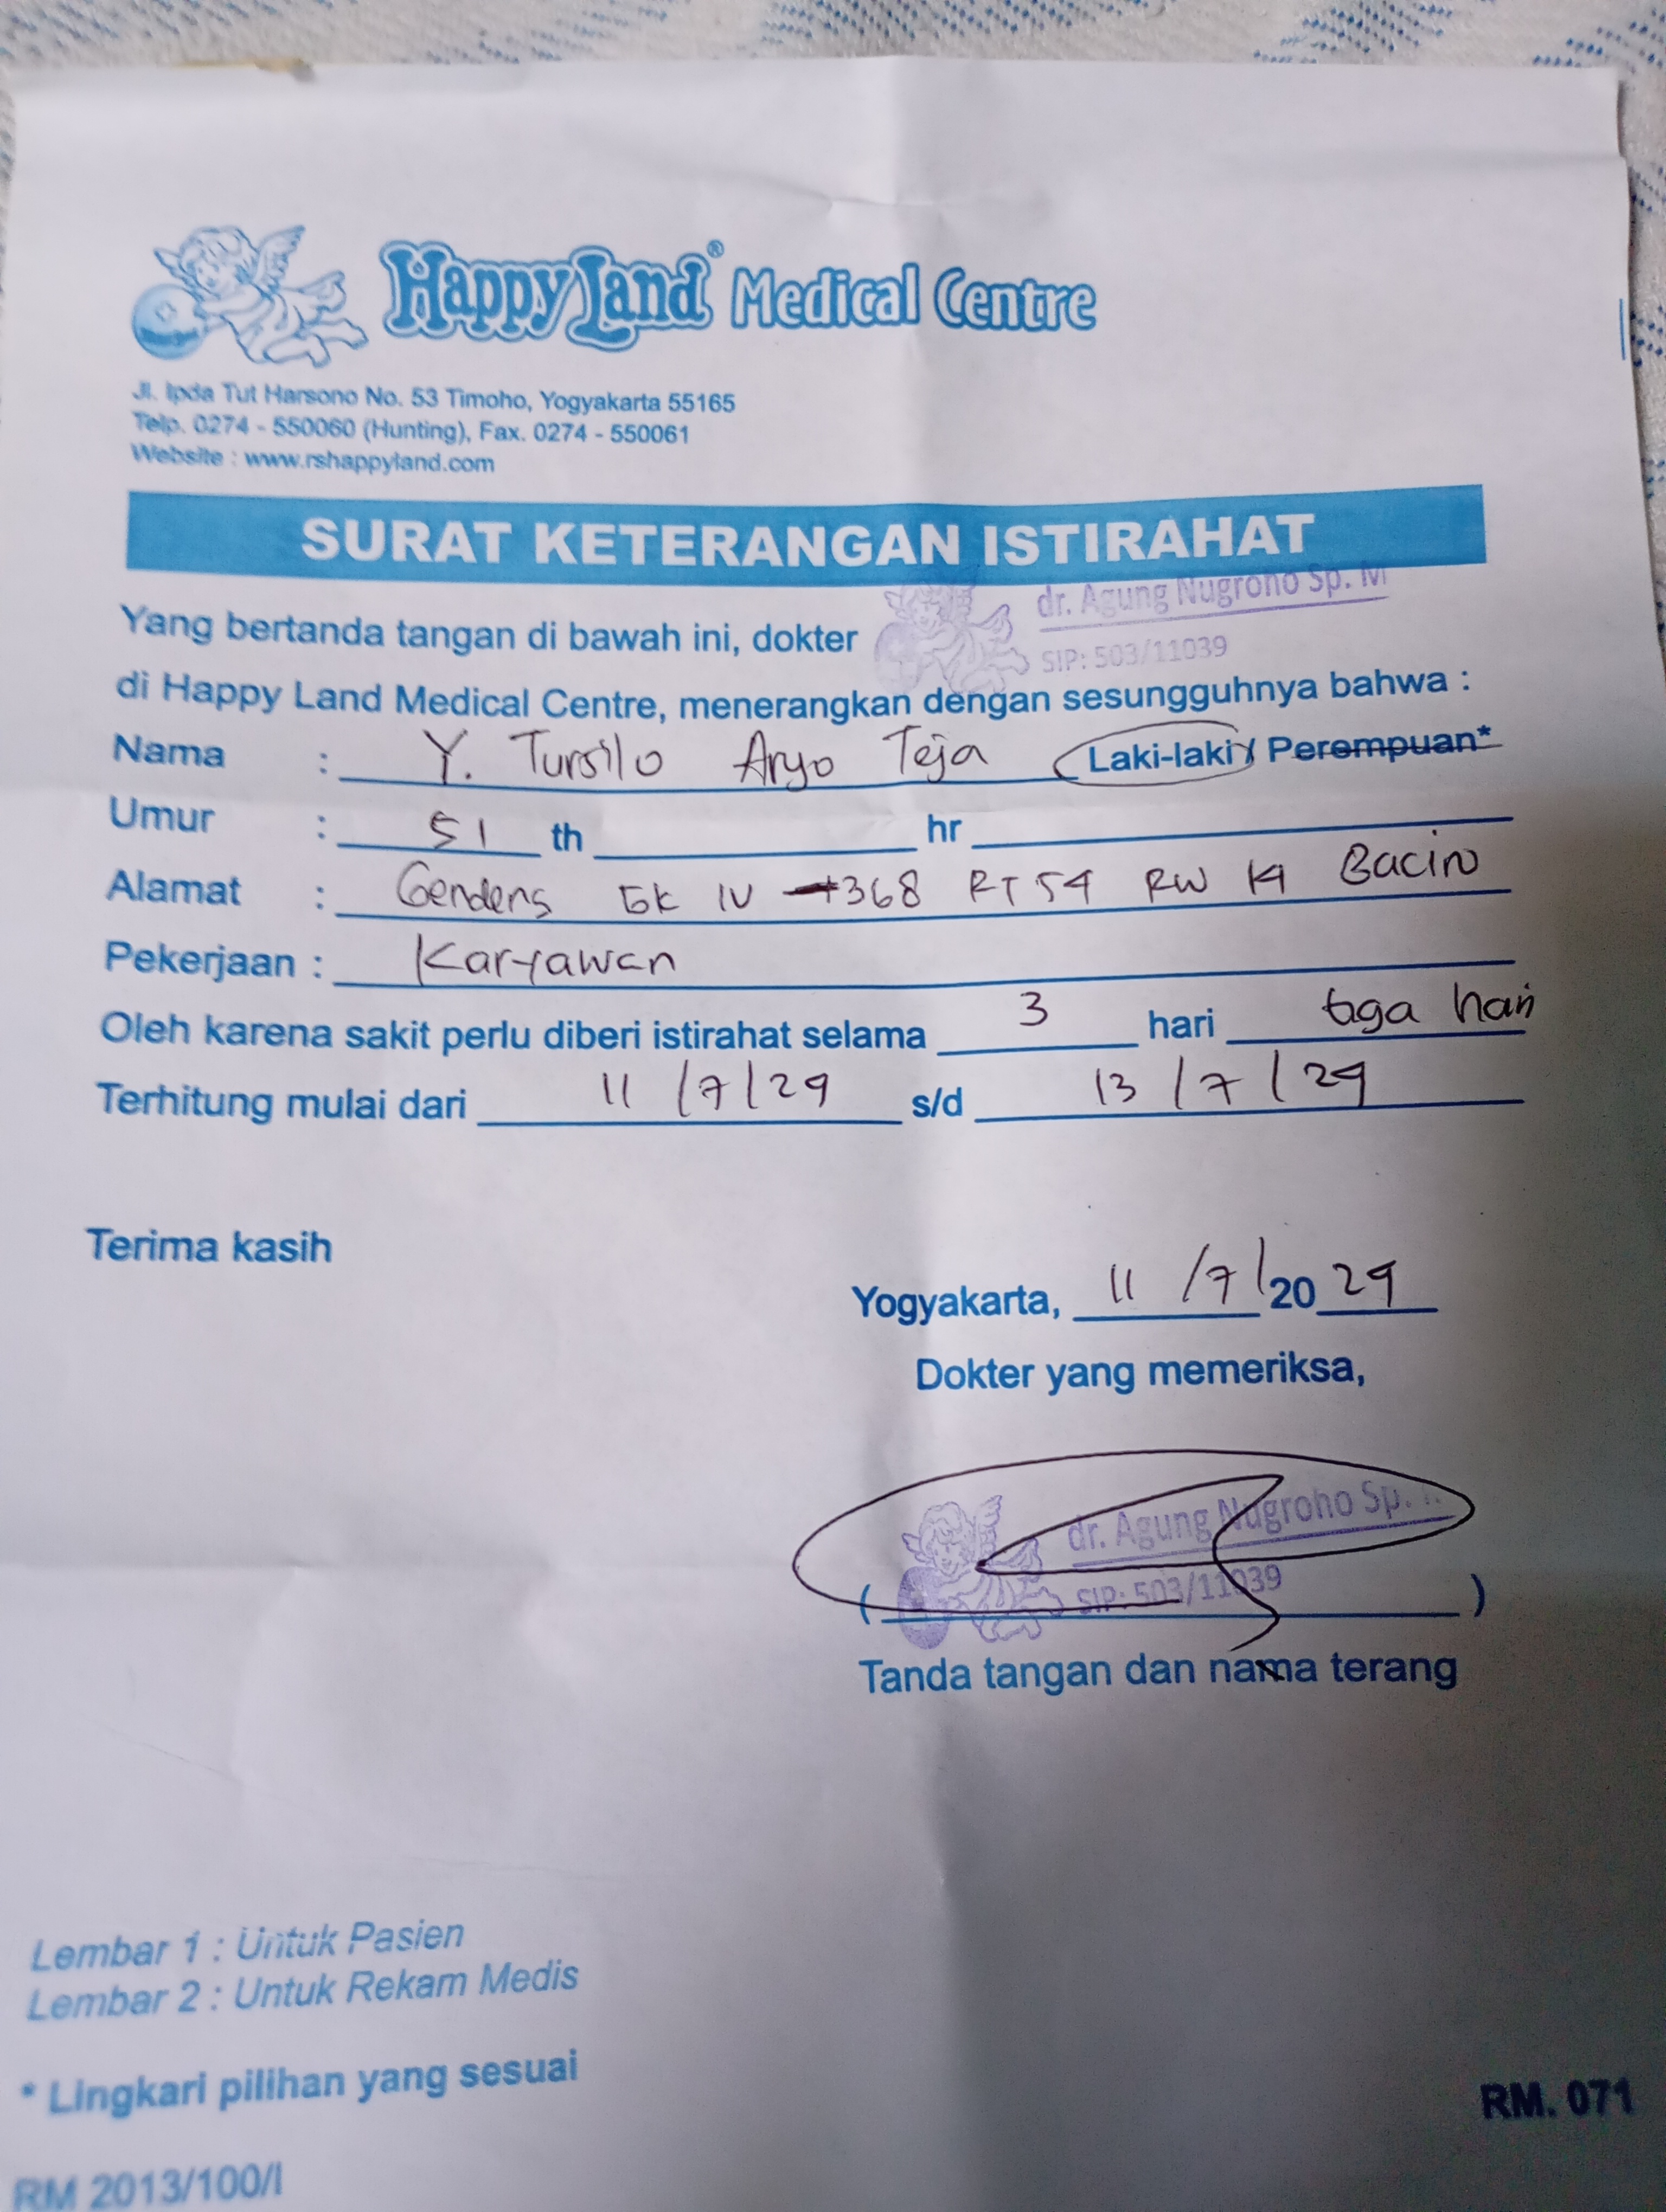 Happy Land® Medical Centre
Jl. Ipda Tut Harsono No. 53 Timoho, Yogyakarta 55165
Telp. 0274 - 550060 (Hunting), Fax. 0274 - 550061
Website : www.rshappyland.com
SURAT KETERANGAN ISTIRAHAT
dr. Agung Nugroho Sp. M
Yang bertanda tangan di bawah ini, dokter
SIP: 503/11039
di Happy Land Medical Centre, menerangkan dengan sesungguhnya bahwa :
Nama : Y. Tursilo Aryo Teja Laki-laki / Perempuan*
Umur : 51 th hr
Alamat : Gendeng GK IV 368 RT 54 RW 14 Baciro
Pekerjaan : Karyawan
Oleh karena sakit perlu diberi istirahat selama 3 hari tiga hari
Terhitung mulai dari 11 /7/24 s/d 13 /7/24
Terima kasih
Yogyakarta, 11 /7/2024
Dokter yang memeriksa,
dr. Agung Nugroho Sp.
( SIP: 503/11039 )
Tanda tangan dan nama terang
Lembar 1 : Untuk Pasien
Lembar 2 : Untuk Rekam Medis
* Lingkari pilihan yang sesuai
RM. 071
RM 2013/100/I